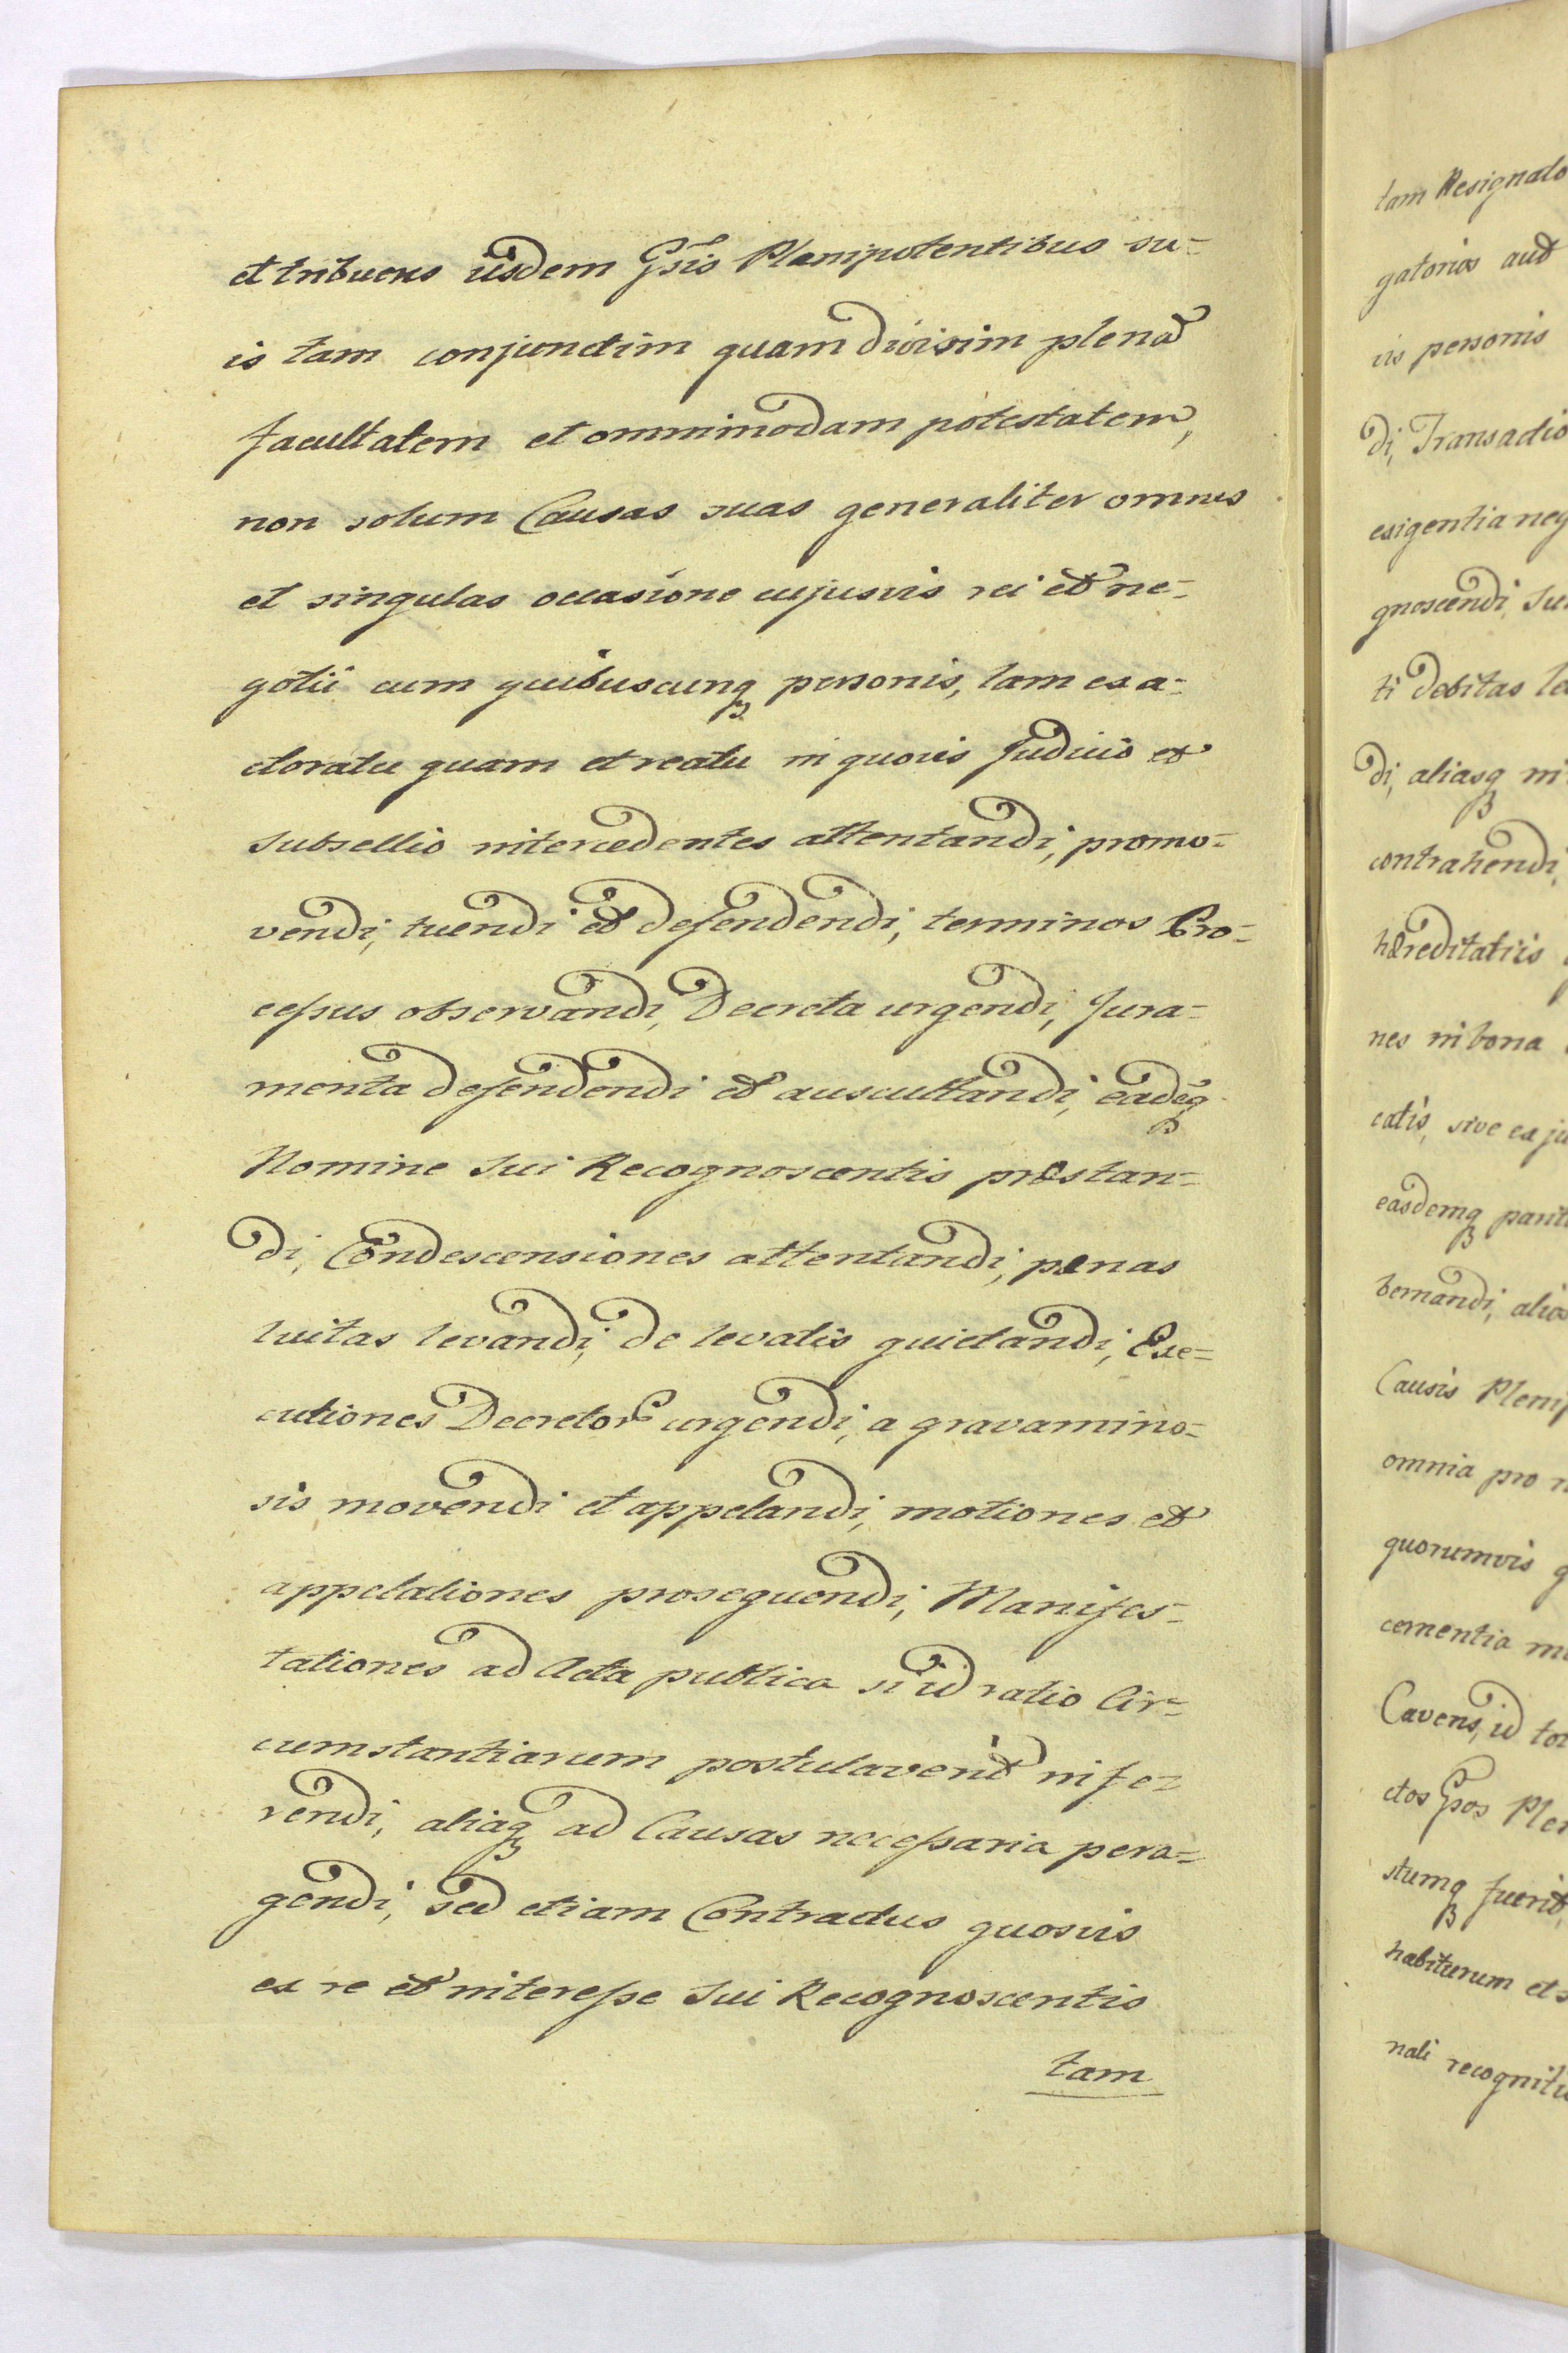 et tribuens iisdem Gsis Plenipotentibus su-
is tam conjunctim quam divisim plenā
facultatem et omnimodam potestatem,
non solum Causas suas generaliter omnes
et singulas occasione cujusvis rei et ne-
gotii cum quibuscunq personis, tam ex a-
ctoratu quam et reatu in quovis Judicio et
Subsellio intercedentes attentandi, promo-
vendi, tuendi et defendendi, terminos Pro-
cessus observandi, Decreta urgendi, Jura-
menta defendendi et auscultandi, eadēq
Nomine Sui Recognoscentis præstan-
di, Condescensiones attentandi, pænas
luitas levandi, de levatis quietandi, Exe-
cutiones Decretor urgendi, a gravamino-
sis movendi et appelandi, motiones et
appelationes prosequendi, Manifes-
tationes ad Acta publica si id ratio Cir-
cumstantiarum postulaverit infe-
rendi, aliaq ad Causas necessaria pera-
gendi, sed etiam Contractus quosvis
ex re et interesse Sui Recognoscentis
tam
tam Resignato
gatorios aut
vis personis
di, Transactio
exigentia neg
gnoscendi, Su
ti debitas le
di, aliasq in
contrahendi,
hæreditatiis
nes in bona
catis, sive ex ju
easdemq parit
bernandi, alios
Causis Plenip
omnia pro
quorumvis
cementia
Cavens, id to
ctos Gsos Ple
stumq fuerit,
habiturum et
nali recognitu